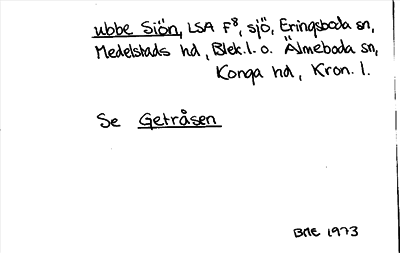 ubbe Siön, LSA F⁸, sjö, Eringsboda sn,
Medelstads hd, Blek. l. o. Älmeboda sn,
Konga hd, Kron. l.
Se Getråsen
BME 1973